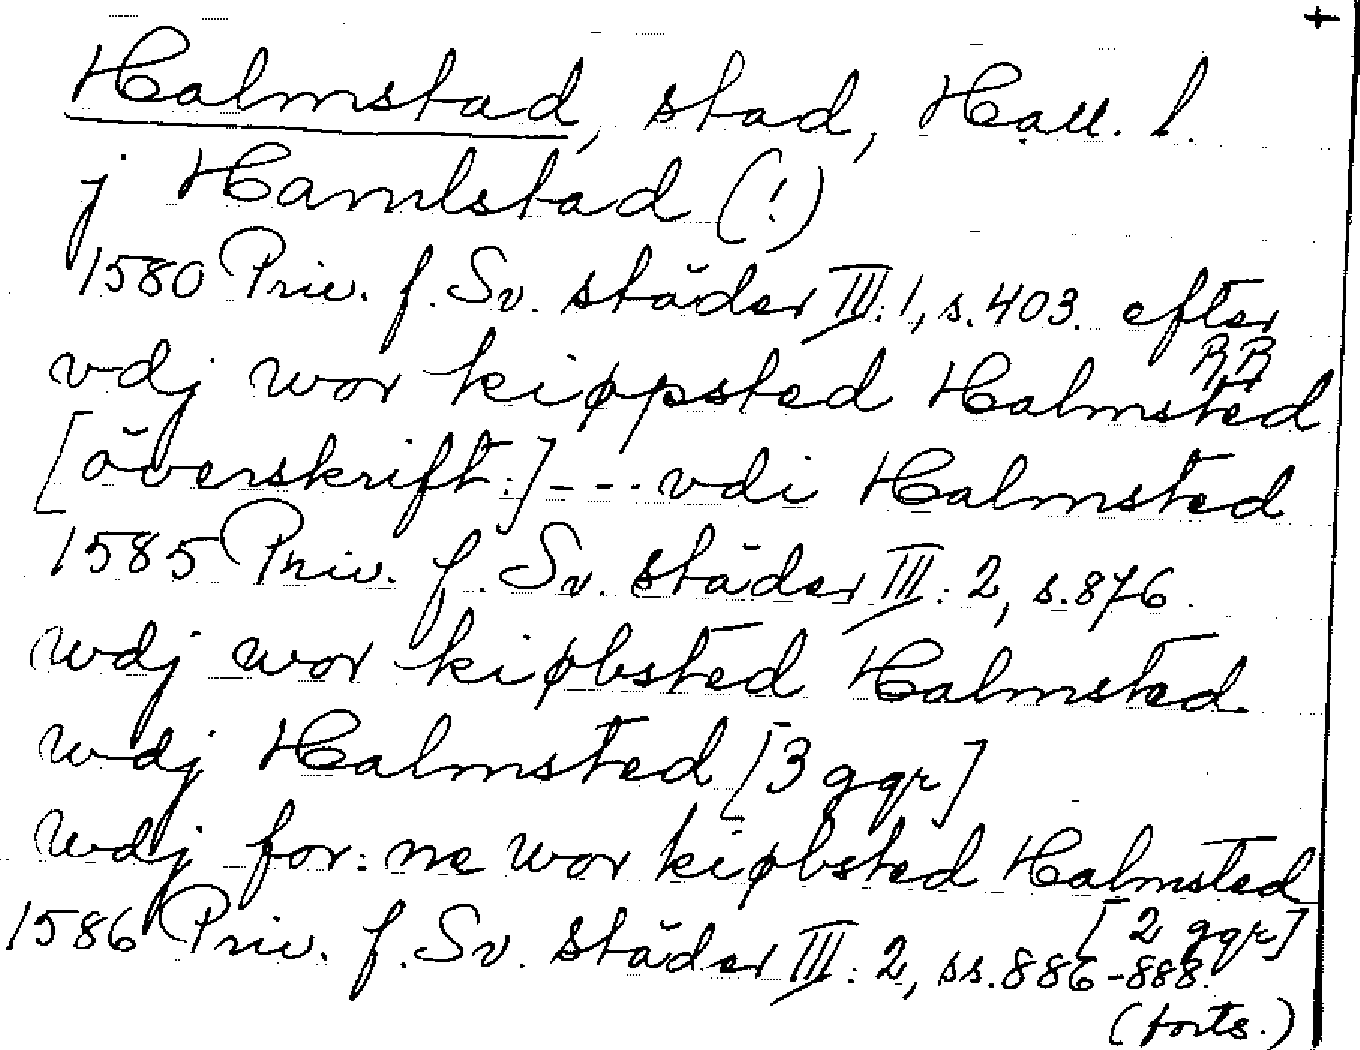 +
Halmstad, stad, Hall. l.
j Hamlstad (!)
1580 Priv. f. Sv. städer III:1, s. 403. efter RR
vdj wor kiøppsted Halmsted
[överskift.] --- vdi Halmsted
1585 Priv. f. Sv. städer III: 2, s. 876.
wdj wor kiøbsted Halmsted
wdj Halmsted [3 ggr]
wdj for: ne wor kiøbsted Halmsted
[2 ggr]
1586 Priv. f. Sv. städer III: 2, ss. 886-888.
(forts.)